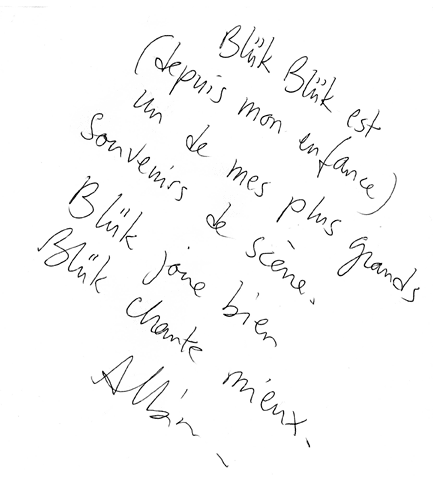 Blük Blük est
(depuis mon enfance)
un de mes plus grands
souvenirs de scène.
Blük joue bien
Blük chante mieux.
Albin